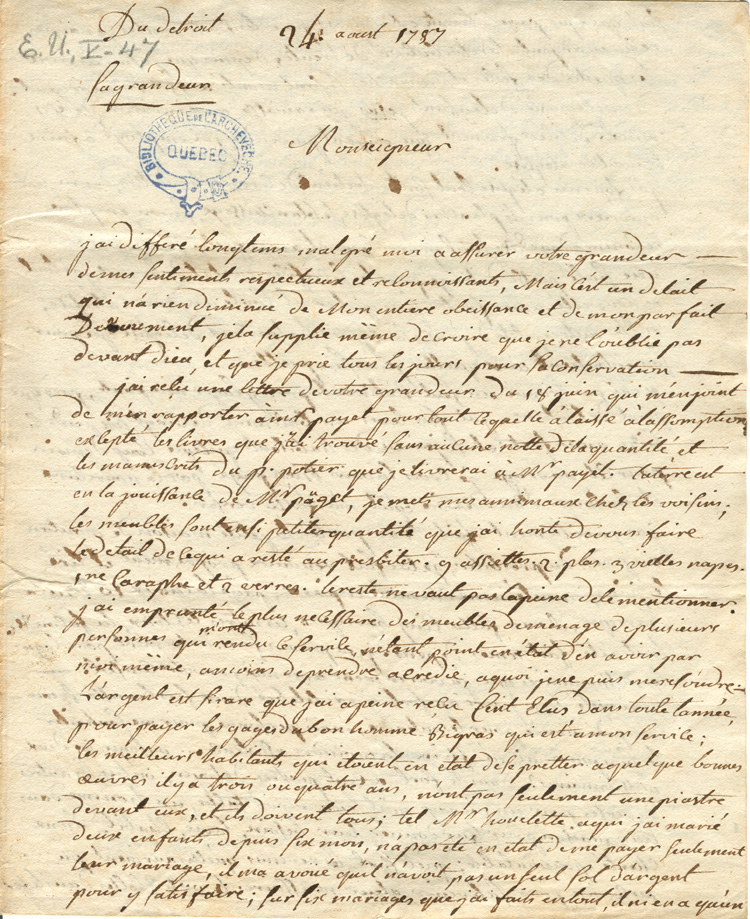 Du detroit 24 aoust 1787
E. U., V-47
sa grandeur
BIBLIOTHEQUE DE L'ARCHEVECHE
QUEBEC
Monseigneur
j'ai differé longtems malgré moi a assurer votre grandeur
de mes sentiments respectueux et reconnoissants, Mais c'est un delait
qui n'a rien diminué de Mon entiere obeissance et de mon parfait
Devouement, je la supplie même de croire que je ne l'oublie pas
devant dieu, et que je prie tous les jours pour sa conservation
j'ai reçu une lettre de votre grandeur du 18 juin qui m'enjoint
de m'en rapporter a mr payet pour tout ce quelle a laissé à l'assomption
excepté les livres que j'ai trouvé sans aucune notte de la quantité, et
les manuscrits du p. potier que je livrerai à Mr payet. la terre est
en la jouissance de Mr päyet, je mets mes animaux chez les voisins;
les meubles sont en si petite quantité que j'ai honte de vous faire
le detail de ce qui a resté au presbiter. 9 assiettes. 2. plas. 3 vielles napes.
une Caraphe et 2 verres. le reste ne vaut pas la peine de le mentionner.
j'ai emprunté le plus necessaire des meubles de menage de plusieurs
personnes qui m'ont rendu le service, n'etant point en etat d'en avoir par
moi même, a moins de prendre a credie, a quoi je ne puis me resoudre
L'argent est si rare que j'ai a peine reçu Cent Ecus dans toute l'année,
pour payer les gages du bon homme Bigras qui est a mon service;
les meilleurs habitants qui etoient en etat de se pretter a quelque bonnes
œuvres il y a trois ou quatre ans, n'ont pas seulement une piastre
devant eux, et ils doivent tous; tel Mr a qui j'ai marié
deux enfants depuis six mois, n'a pas été en etat de me payer seulement
leur mariage, il m'a avoué qu'il n'avoit pas un seul sol d'argent
pour y satisfaire; sur six mariages que j'ai faits en tout, il n'i en a qu'un